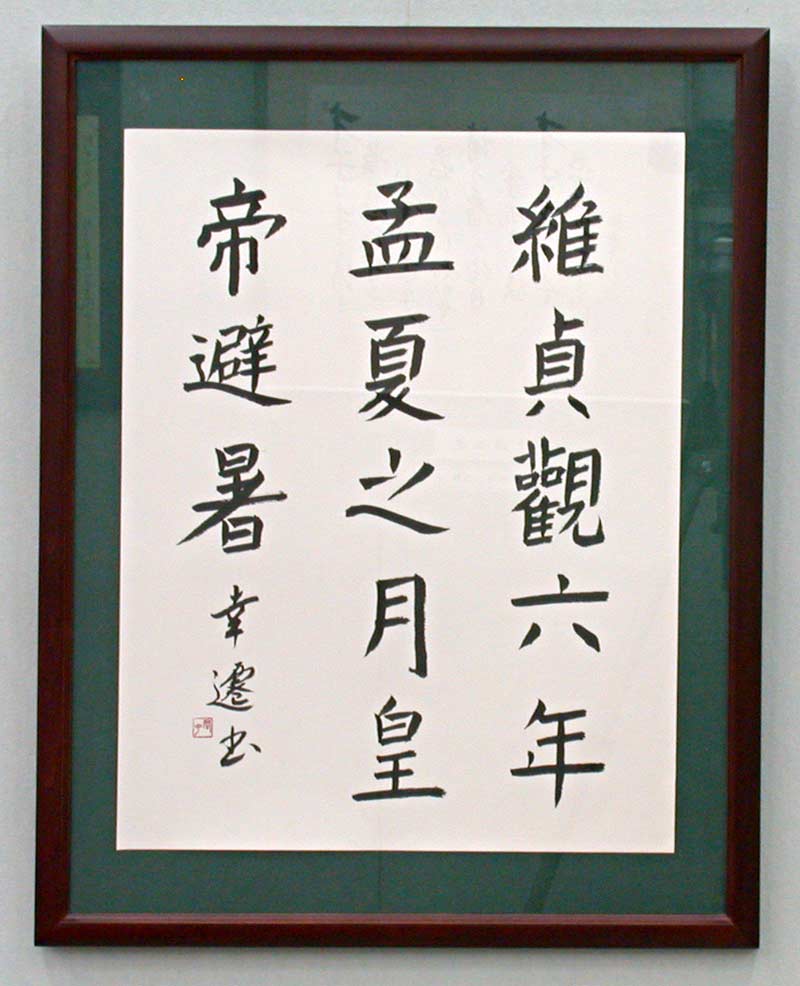 維貞觀六年
孟夏之月皇
帝避暑
幸遷书